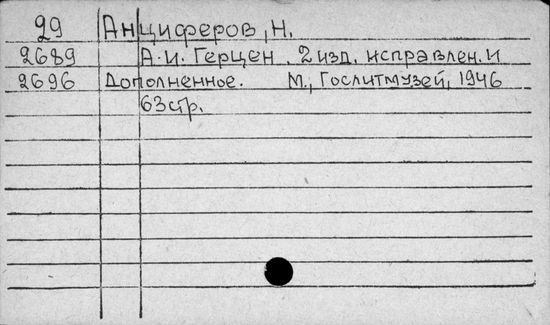 29 Анциферов, Н.
2689 А.И. Герцен. 2 изд. исправлен. и
2696 Дополненное. М., Гослитмузей, 1946
63 стр.